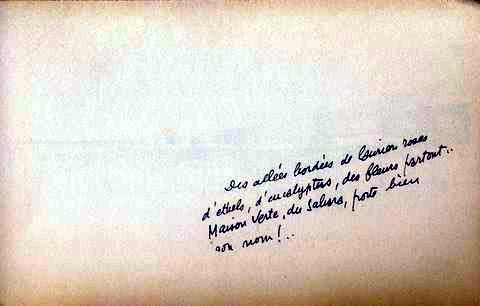 Des allées bordées de laurier roses
d'ethels, d'eucalyptus, des fleurs partout..
Maison Verte, du Sahara, porte bien
son nom!..